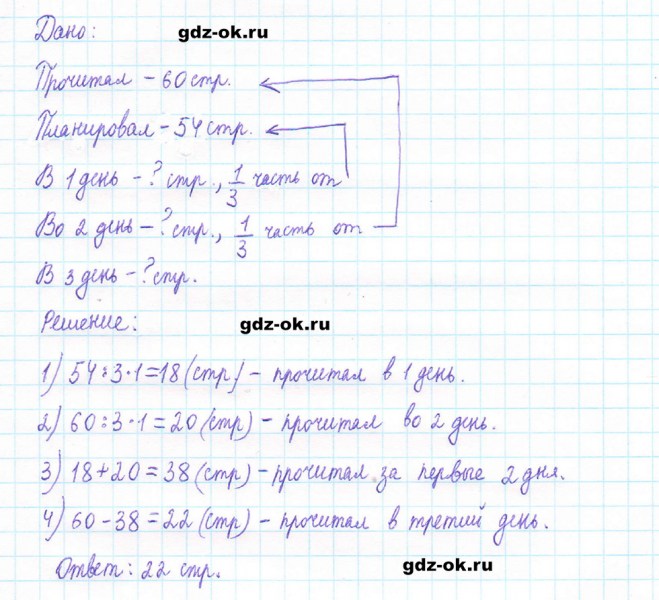 Дано: gdz-ok.ru
Прочитал – 60 стр.
Планировал – 54 стр.
В 1 день – ? стр., 1/3 часть от
Во 2 день – ? стр., 1/3 часть от
В 3 день – ? стр.
Решение: gdz-ok.ru
1) 54:3·1=18 (стр) – прочитал в 1 день.
2) 60:3·1=20 (стр) – прочитал во 2 день.
3) 18+20=38 (стр) – прочитал за первые 2 дня.
4) 60-38=22 (стр) – прочитал в третий день.
Ответ: 22 стр. gdz-ok.ru